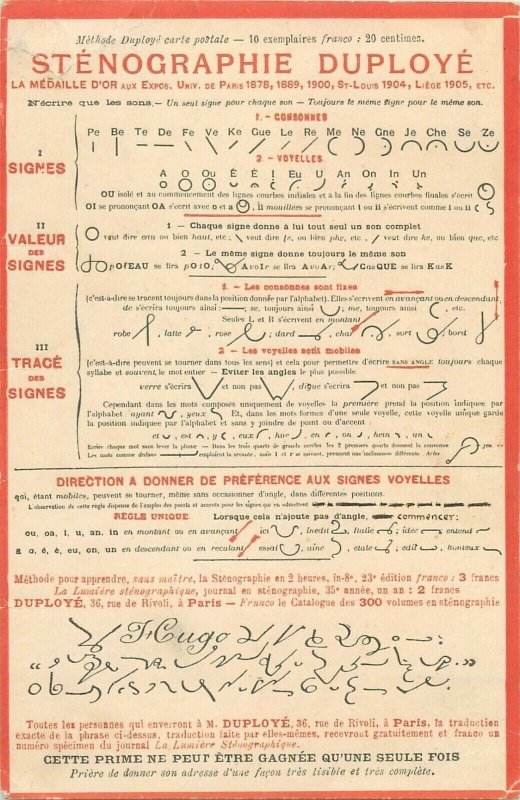 Méthode Duployé carte postale — 10 exemplaires franco : 20 centimes.
STÉNOGRAPHIE DUPLOYÉ
LA MÉDAILLE D'OR AUX EXPOS. UNIV. DE PARIS 1878, 1889, 1900, ST-LOUIS 1904, LIÈGE 1905, ETC.
N'écrire que les sons. — Un seul signe pour chaque son — Toujours le même signe pour le même son.
I
SIGNES
1. - CONSONNES
Pe Be Te De Fe Ve Ke Gue Le Re Me Ne Gne Je Che Se Ze
2. - VOYELLES
A O Ou È É I Eu U An On In Un
OU isolé et au commencement des lignes courbes initiales et à la fin des lignes courbes finales s'écrit
OI se prononçant OA s'écrit avec o et a, ill mouillées se prononçant i ou ii s'écrivent comme i ou ii
II
VALEUR
DES
SIGNES
1 — Chaque signe donne à lui tout seul un son complet
veut dire eau ou bien haut, etc., veut dire fe, ou bien phe, etc., veut dire ke, ou bien que, etc
2 — Le même signe donne toujours le même son
POTEAU se lira POTO; AvoIr se lira AvoAr; CasQUE se lira KasK
III
TRACÉ
DES
SIGNES
1. - Les consonnes sont fixes
(c'est-à-dire se tracent toujours dans la position donnée par l'alphabet). Elles s'écrivent en avançant ou en descendant
de s'écrira toujours ainsi: se, toujours ainsi; me, toujours ainsi, etc.
Seules L et R s'écrivent en montant
robe, latte, rose; dard, char, sort, bord
2 - Les voyelles sont mobiles
(c'est-à-dire peuvent se tourner dans tous les sens) et cela pour permettre d'écrire SANS ANGLE toujours chaque
syllabe et souvent le mot entier — Eviter les angles le plus possible.
verre s'écrira et non pas, digue s'écrira et non pas
Cependant dans les mots composés uniquement de voyelles la première prend la position indiquée par
l'alphabet ayant, yeux. Et, dans les mots formés d'une seule voyelle, cette voyelle unique garde
la position indiquée par l'alphabet et sans y joindre de point ou d'accent :
eu, est, y, eux, hue, en, on, hein, un
Ecrire chaque mot sans lever la plume — Dans les trois quarts de grands cercles les 2 premiers quarts donnent la consonne
DIRECTION A DONNER DE PRÉFÉRENCE AUX SIGNES VOYELLES
qui, étant mobiles, peuvent se tourner, même sans occasionner d'angle, dans différentes positions.
L'observation de cette règle dispense de l'emploi des points et accents pour les signes qui en admettent
RÈGLE UNIQUE. Lorsque cela n'ajoute pas d'angle, commencer:
ou, oa, i, u, an, in en montant ou en avançant, ici, inédit, Italie; idée, entend
a, o, è, é, eu, on, un en descendant ou en reculant, essai, aîné, état, édit, honteux
Méthode pour apprendre, sans maître, la Sténographie en 2 heures, in-8°, 23e édition franco : 3 francs
La Lumière sténographique, journal en sténographie, 35e année, un an : 2 francs
DUPLOYÉ, 36, rue de Rivoli, à Paris — Franco le Catalogue des 300 volumes en sténographie
Hugo
Toutes les personnes qui enverront à M. DUPLOYÉ, 36, rue de Rivoli, à Paris, la traduction
exacte de la phrase ci-dessus, traduction faite par elles-mêmes, recevront gratuitement et franco un
numéro spécimen du journal La Lumière Sténographique.
CETTE PRIME NE PEUT ÊTRE GAGNÉE QU'UNE SEULE FOIS
Prière de donner son adresse d'une façon très lisible et très complète.